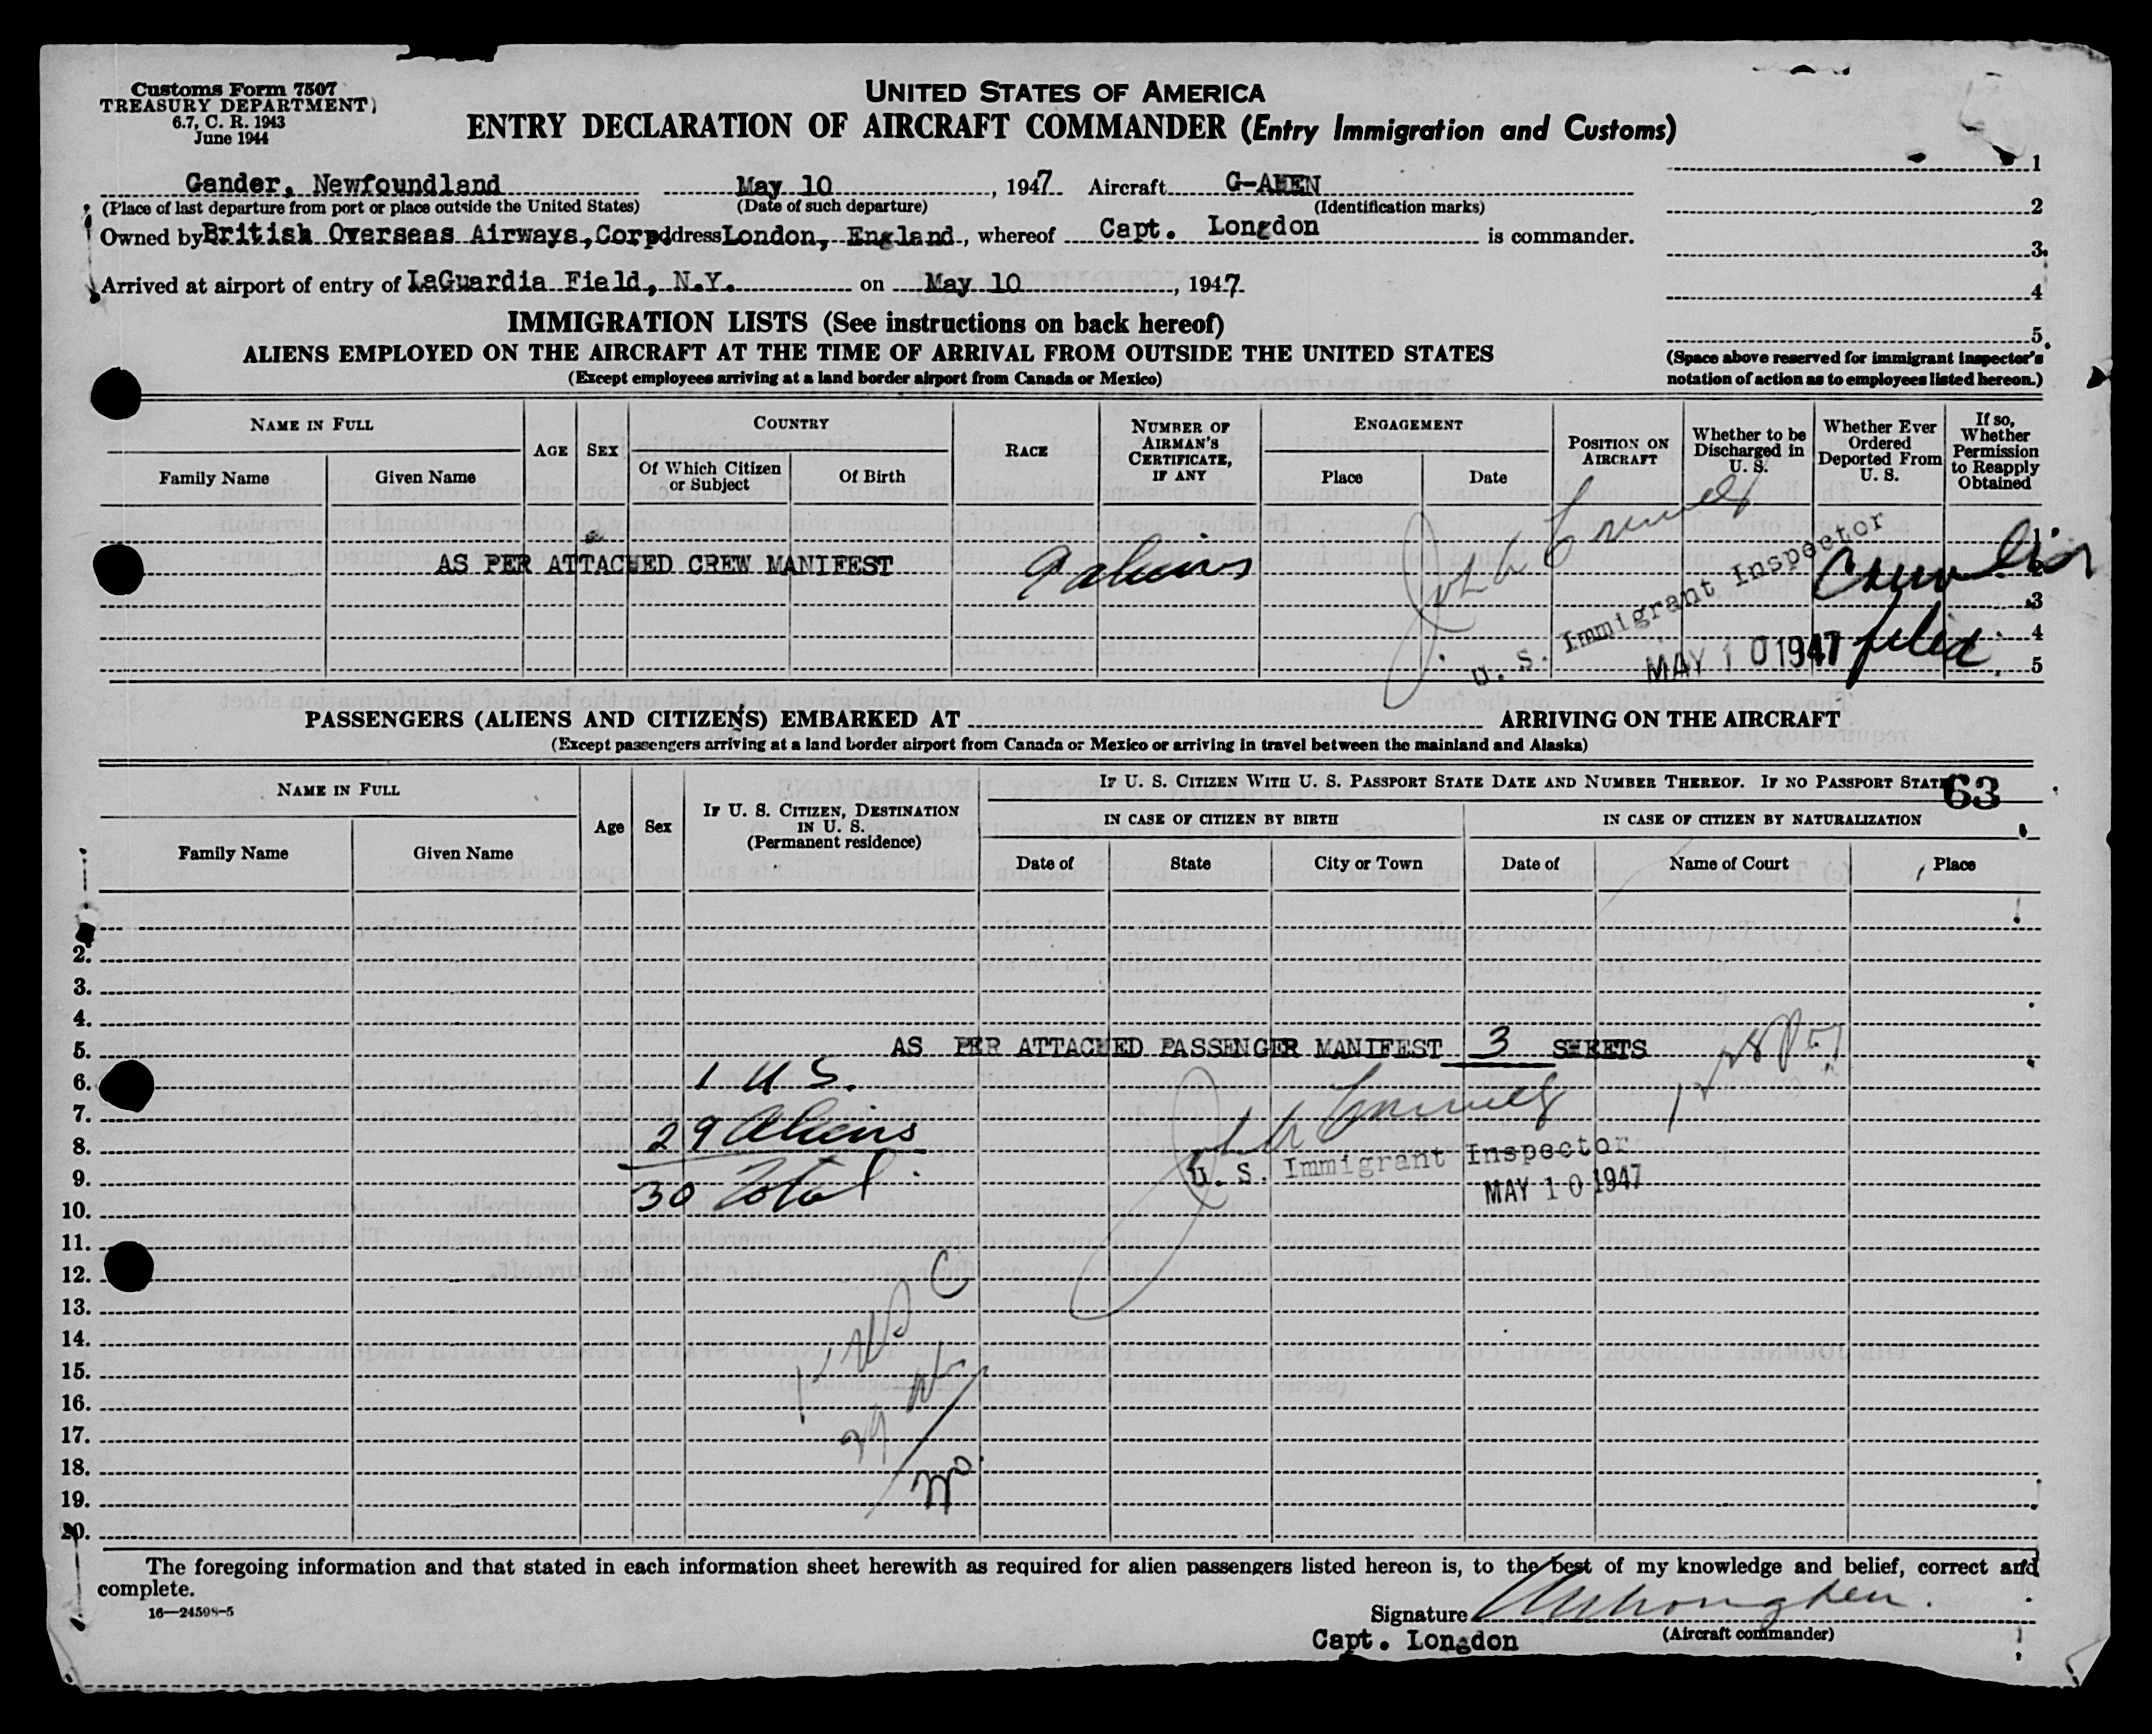 Customs Form 7507
TREASURY DEPARTMENT
6.7, C. R. 1943
June 1944
UNITED STATES OF AMERICA
ENTRY DECLARATION OF AIRCRAFT COMMANDER (Entry Immigration and Customs)
Gander, Newfoundland May 10, 1947 Aircraft G-AHEN
(Place of last departure from port or place outside the United States) (Date of such departure) (Identification marks)
Owned by British Overseas Airways, Corp. Address London, England, whereof Capt. Longdon is commander.
Arrived at airport of entry of LaGuardia Field, N.Y. on May 10, 1947
1
2
3
4
5
(Space above reserved for immigrant inspector's notation of action as to employees listed hereon.)
IMMIGRATION LISTS (See instructions on back hereof)
ALIENS EMPLOYED ON THE AIRCRAFT AT THE TIME OF ARRIVAL FROM OUTSIDE THE UNITED STATES
(Except employees arriving at a land border airport from Canada or Mexico)
NAME IN FULL
Family Name Given Name
AGE SEX
COUNTRY
Of Which Citizen or Subject Of Birth
RACE
NUMBER OF AIRMAN'S CERTIFICATE, IF ANY
ENGAGEMENT
Place Date
POSITION ON AIRCRAFT
Whether to be Discharged in U. S.
Whether Ever Ordered Deported From U. S.
If so, Whether Permission to Reapply Obtained
AS PER ATTACHED CREW MANIFEST 9 aliens
Crew list
filed
U. S. Immigrant Inspector
MAY 10 1947
1
2
3
4
5
PASSENGERS (ALIENS AND CITIZENS) EMBARKED AT ARRIVING ON THE AIRCRAFT
(Except passengers arriving at a land border airport from Canada or Mexico or arriving in travel between the mainland and Alaska)
NAME IN FULL
Family Name Given Name
Age Sex
IF U. S. CITIZEN, DESTINATION IN U. S.
(Permanent residence)
IF U. S. CITIZEN WITH U. S. PASSPORT STATE DATE AND NUMBER THEREOF. IF NO PASSPORT STATE
63
IN CASE OF CITIZEN BY BIRTH IN CASE OF CITIZEN BY NATURALIZATION
Date of State City or Town Date of Name of Court Place
2.
3.
4.
5. AS PER ATTACHED PASSENGER MANIFEST 3 SHEETS
6. 1 U S.
7.
8. 29 Aliens
U. S. Immigrant Inspector
9.
MAY 10 1947
10. 30 Total
11.
12.
13.
14.
15.
16.
17.
18.
19.
20.
The foregoing information and that stated in each information sheet herewith as required for alien passengers listed hereon is, to the best of my knowledge and belief, correct and
complete.
16—24598-5
Signature
Capt. Longdon (Aircraft commander)